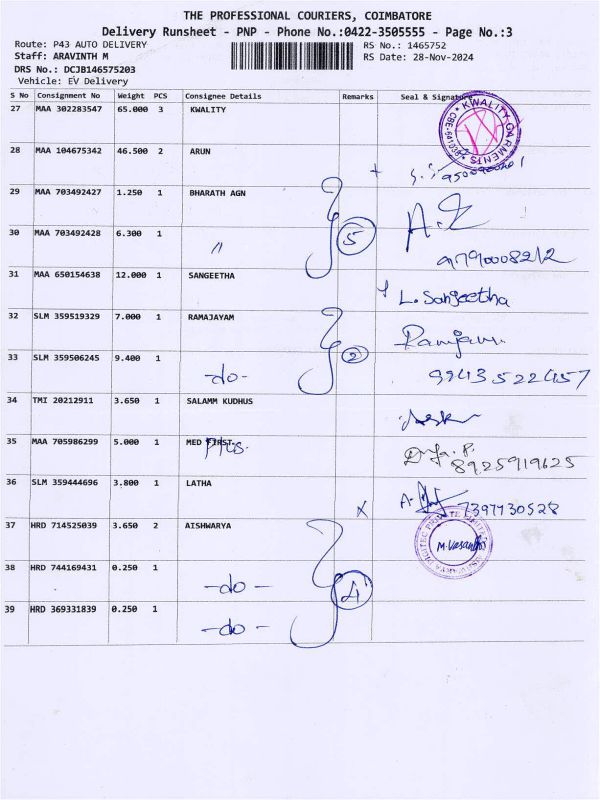 THE PROFESSIONAL COURIERS, COIMBATORE
Delivery Runsheet - PNP - Phone No.:0422-3505555 - Page No.:3
Route: P43 AUTO DELIVERY RS No.: 1465752
Staff: ARAVINTH M RS Date: 28-Nov-2024
DRS No.: DCJB146575203
Vehicle: EV Delivery
S No Consignment No Weight PCS Consignee Details Remarks Seal & Signature
27 MAA 302283547 65.000 3 KWALITY
KWALITY GARMENTS
28 MAA 104675342 46.500 2 ARUN
29 MAA 703492427 1.250 1 BHARATH AGN
30 MAA 703492428 6.300 1 〃 5
9790008212
31 MAA 650154638 12.000 1 SANGEETHA L. Sangeetha
32 SLM 359519329 7.000 1 RAMAJAYAM
33 SLM 359506245 9.400 1 -do- 2 9943522457
34 TMI 20212911 3.650 1 SALAMM KUDHUS
35 MAA 705986299 5.000 1 MED FIRST
8925919625
36 SLM 359444696 3.800 1 LATHA 7397730528
37 HRD 714525039 3.650 2 AISHWARYA
38 HRD 744169431 0.250 1 -do- 4
39 HRD 369331839 0.250 1 -do-